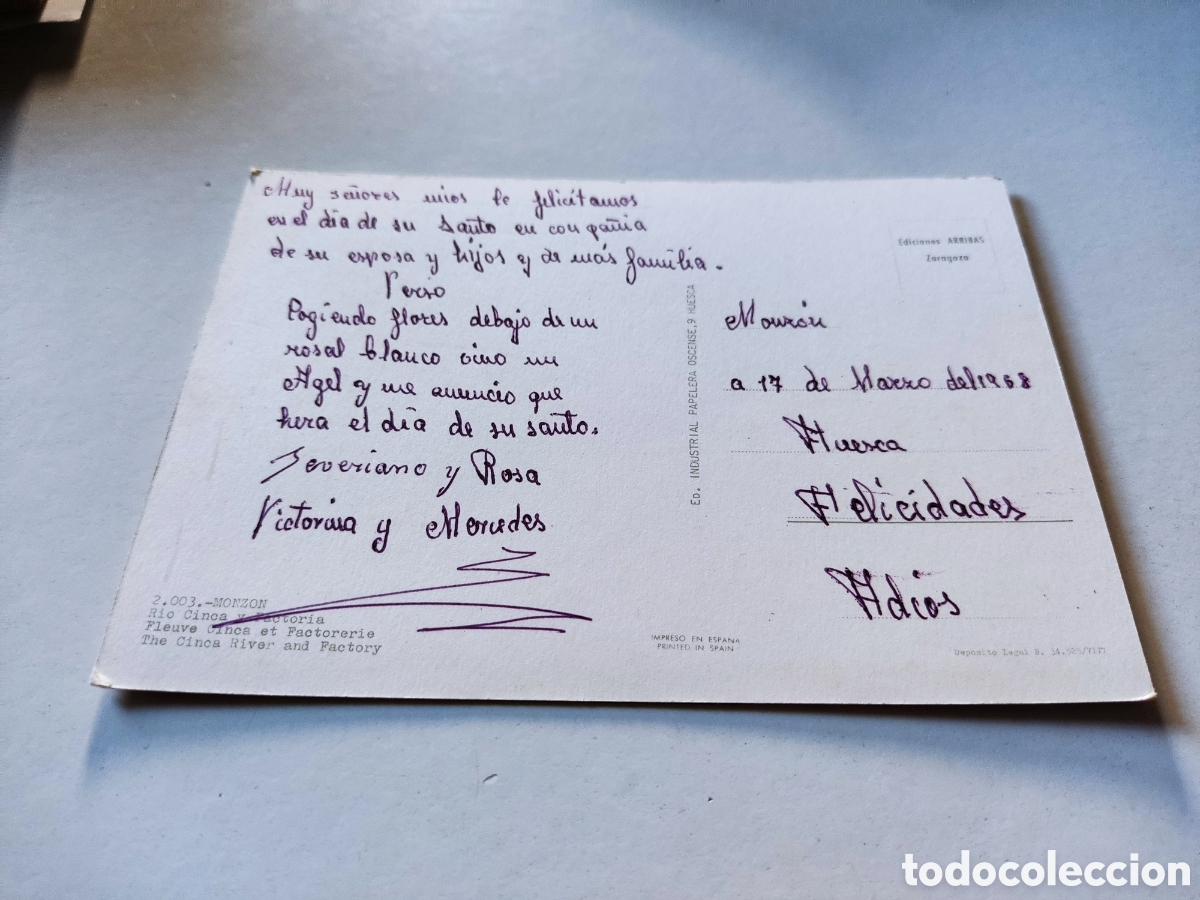 Muy señores mios le felicitamos
en el día de su santo en conpañia
de su esposa y hijos y de más familia.
Verso
Cogiendo flores debajo de un
rosal blanco vino un
Agel y me anuncio que
hera el día de su santo.
Severiano y Rosa
Victorina y Mercedes
2.003.-MONZON
Rio Cinca y Factoria
Fleuve Cinca et Factorerie
The Cinca River and Factory
ED. INDUSTRIAL PAPELERA OSCENSE, 9 HUESCA
IMPRESO EN ESPAÑA
PRINTED IN SPAIN
Ediciones ARRIBAS
Zaragoza
Monzón
a 17 de Marzo del 1968
Huesca
Felicidades
Adios
Deposito Legal B.
todocoleccion